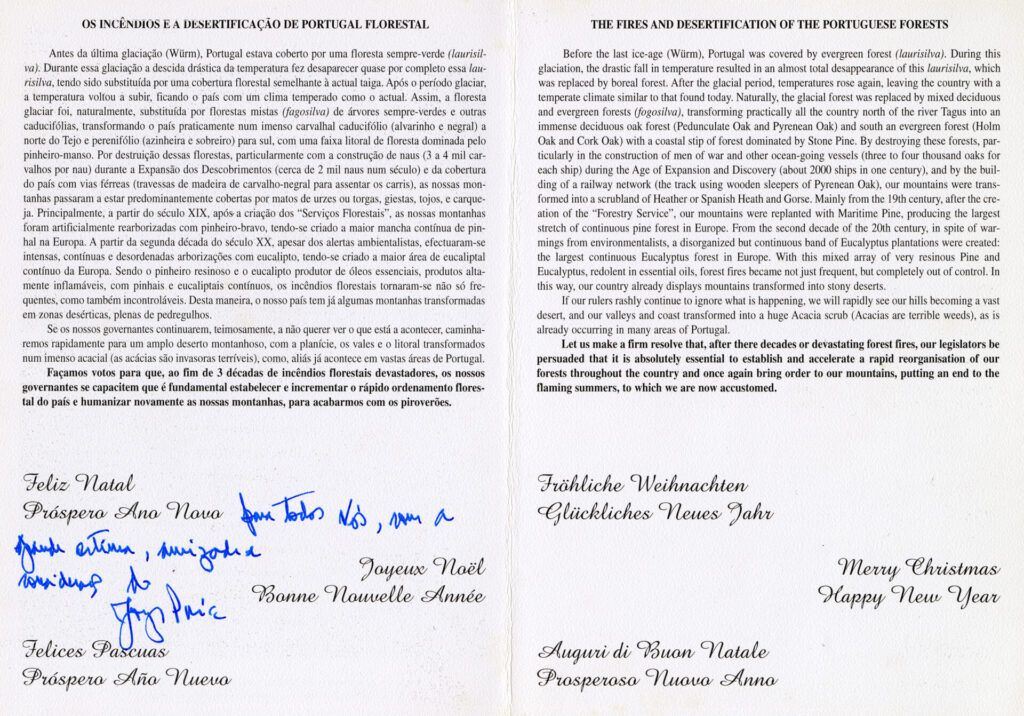 OS INCÊNDIOS E A DESERTIFICAÇÃO DE PORTUGAL FLORESTAL
Antes da última glaciação (Würm), Portugal estava coberto por uma floresta sempre-verde (laurisil-
va). Durante essa glaciação a descida drástica da temperatura fez desaparecer quase por completo essa lau-
risilva, tendo sido substituída por uma cobertura florestal semelhante à actual taiga. Após o período glaciar,
a temperatura voltou a subir, ficando o país com um clima temperado como o actual. Assim, a floresta
glaciar foi, naturalmente, substituída por florestas mistas (fagosilva) de árvores sempre-verdes e outras
caducifólias, transformando o país praticamente num imenso carvalhal caducifólio (alvarinho e negral) a
norte do Tejo e perenifólio (azinheira e sobreiro) para sul, com uma faixa litoral de floresta dominada pelo
pinheiro-manso. Por destruição dessas florestas, particularmente com a construção de naus (3 a 4 mil car-
valhos por nau) durante a Expansão dos Descobrimentos (cerca de 2 mil naus num século) e da cobertura
do país com vias férreas (travessas de madeira de carvalho-negral para assentar os carris), as nossas mon-
tanhas passaram a estar predominantemente cobertas por matos de urzes ou torgas, giestas, tojos, e carque-
ja. Principalmente, a partir do século XIX, após a criação dos “Serviços Florestais”, as nossas montanhas
foram artificialmente rearborizadas com pinheiro-bravo, tendo-se criado a maior mancha contínua de pin-
hal na Europa. A partir da segunda década do século XX, apesar dos alertas ambientalistas, efectuaram-se
intensas, contínuas e desordenadas arborizações com eucalipto, tendo-se criado a maior área de eucaliptal
contínuo da Europa. Sendo o pinheiro resinoso e o eucalipto produtor de óleos essenciais, produtos alta-
mente inflamáveis, com pinhais e eucaliptais contínuos, os incêndios florestais tornaram-se não só fre-
quentes, como também incontroláveis. Desta maneira, o nosso país tem já algumas montanhas transformadas
em zonas desérticas, plenas de pedregulhos.
Se os nossos governantes continuarem, teimosamente, a não querer ver o que está a acontecer, caminha-
remos rapidamente para um amplo deserto montanhoso, com a planície, os vales e o litoral transformados
num imenso acacial (as acácias são invasoras terríveis), como, aliás já acontece em vastas áreas de Portugal.
Façamos votos para que, ao fim de 3 décadas de incêndios florestais devastadores, os nossos
governantes se capacitem que é fundamental estabelecer e incrementar o rápido ordenamento flores-
tal do país e humanizar novamente as nossas montanhas, para acabarmos com os piroverões.
Feliz Natal
Próspero Ano Novo para todos Nós, com a
grande estima, amizade e
consideração do
Joyeux Noël
Bonne Nouvelle Année
Felices Pascuas
Próspero Año Nuevo
THE FIRES AND DESERTIFICATION OF THE PORTUGUESE FORESTS
Before the last ice-age (Würm), Portugal was covered by evergreen forest (laurisilva). During this
glaciation, the drastic fall in temperature resulted in an almost total desappearance of this laurisilva, which
was replaced by boreal forest. After the glacial period, temperatures rose again, leaving the country with a
temperate climate similar to that found today. Naturally, the glacial forest was replaced by mixed deciduous
and evergreen forests (fogosilva), transforming practically all the country north of the river Tagus into an
immense deciduous oak forest (Pedunculate Oak and Pyrenean Oak) and south an evergreen forest (Holm
Oak and Cork Oak) with a coastal stip of forest dominated by Stone Pine. By destroying these forests, par-
ticularly in the construction of men of war and other ocean-going vessels (three to four thousand oaks for
each ship) during the Age of Expansion and Discovery (about 2000 ships in one century), and by the buil-
ding of a railway network (the track using wooden sleepers of Pyrenean Oak), our mountains were trans-
formed into a scrubland of Heather or Spanish Heath and Gorse. Mainly from the 19th century, after the cre-
ation of the “Forestry Service”, our mountains were replanted with Maritime Pine, producing the largest
stretch of continuous pine forest in Europe. From the second decade of the 20th century, in spite of war-
mings from environmentalists, a disorganized but continuous band of Eucalyptus plantations were created:
the largest continuous Eucalyptus forest in Europe. With this mixed array of very resinous Pine and
Eucalyptus, redolent in essential oils, forest fires became not just frequent, but completely out of control. In
this way, our country already displays mountains transformed into stony deserts.
If our rulers rashly continue to ignore what is happening, we will rapidly see our hills becoming a vast
desert, and our valleys and coast transformed into a huge Acacia scrub (Acacias are terrible weeds), as is
already occurring in many areas of Portugal.
Let us make a firm resolve that, after there decades or devastating forest fires, our legislators be
persuaded that it is absolutely essential to establish and accelerate a rapid reorganisation of our
forests throughout the country and once again bring order to our mountains, putting an end to the
flaming summers, to which we are now accustomed.
Fröhliche Weihnachten
Glückliches Neues Jahr
Merry Christmas
Happy New Year
Auguri di Buon Natale
Prosperoso Nuovo Anno